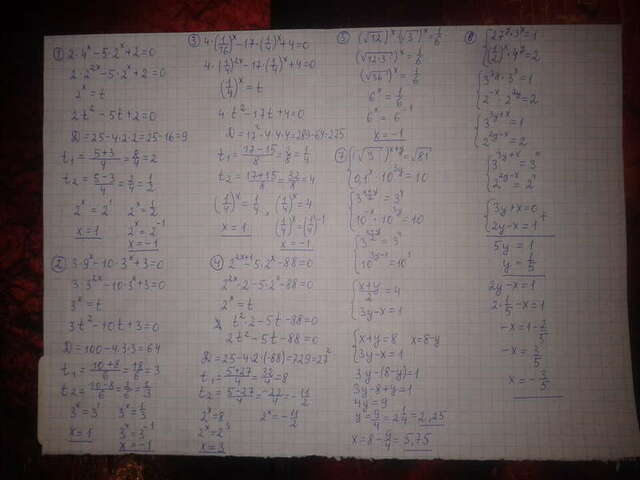 ① 2·4ˣ-5·2ˣ+2=0
2·2²ˣ-5·2ˣ+2=0
2ˣ=t
2t²-5t+2=0
D=25-4·2·2=25-16=9
t₁=(5+3)/4=8/4=2
t₂=(5-3)/4=2/4=1/2
2ˣ=2¹ 2ˣ=1/2
x=1 2ˣ=2⁻¹
x=-1
② 3·9ˣ-10·3ˣ+3=0
3·3²ˣ-10·3ˣ+3=0
3ˣ=t
3t²-10t+3=0
D=100-4·3·3=64
t₁=(10+8)/6=18/6=3
t₂=(10-8)/6=2/6=1/3
3ˣ=3¹ 3ˣ=1/3
x=1 3ˣ=3⁻¹
x=-1
③ 4·(1/16)ˣ-17·(1/4)ˣ+4=0
4·(1/4)²ˣ-17·(1/4)ˣ+4=0
(1/4)ˣ=t
4t²-17t+4=0
D=17²-4·4·4=289-64=225
t₁=(17-15)/8=2/8=1/4
t₂=(17+15)/8=32/8=4
(1/4)ˣ=1/4, (1/4)ˣ=4
x=1 (1/4)ˣ=(1/4)⁻¹
x=-1
④ 2²ˣ⁺¹-5·2ˣ-88=0
2²ˣ·2-5·2ˣ-88=0
2ˣ=t
t²·2-5t-88=0
2t²-5t-88=0
D=25-4·2·(-88)=729=27²
t₁=(5+27)/4=32/4=8
t₂=(5-27)/4=-22/4=-11/2
2ˣ=8 2ˣ=-11/2
2ˣ=2³
x=3
⑤ (√12)ˣ·(√3)ˣ=1/6
(√12·3)ˣ=1/6
(√36)ˣ=1/6
6ˣ=1/6
6ˣ=6⁻¹
x=-1
⑦ {(√3)ˣ⁺ʸ=√81
0,1ˣ·10³ʸ=10
{3^((x+y)/2)=3⁴
10⁻ˣ·10³ʸ=10
{3^((x+y)/2)=3⁴
10³ʸ⁻ˣ=10¹
{(x+y)/2=4
3y-x=1
{x+y=8 x=8-y
3y-x=1
3y-(8-y)=1
3y-8+y=1
4y=9
y=9/4=2 1/4=2,25
x=8-9/4=5,75
{27ʸ·3ˣ=1
(1/2)ˣ·4ʸ=2
{3³ʸ·3ˣ=1
2⁻ˣ·2²ʸ=2
{3³ʸ⁺ˣ=1
2²ʸ⁻ˣ=2
{3³ʸ⁺ˣ=3⁰
2²ʸ⁻ˣ=2¹
{3y+x=0
2y-x=1 +
5y=1
y=1/5
2y-x=1
2·1/5-x=1
-x=1-2/5
-x=3/5
x=-3/5